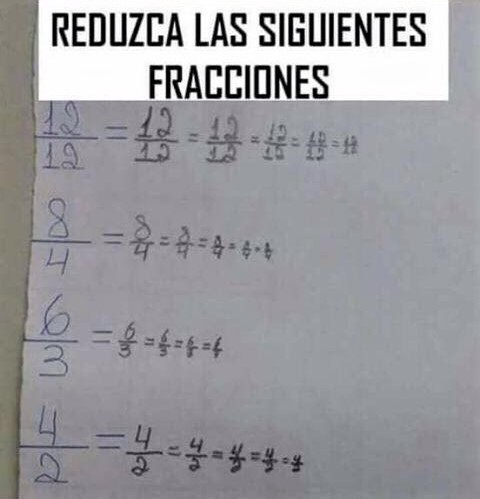 REDUZCA LAS SIGUIENTES
FRACCIONES
12/12 = 12/12 = 12/12 = 12/12 = 12/12 = 12/12
8/4 = 8/4 = 8/4 = 8/4 = 8/4 = 8/4
6/3 = 6/3 = 6/3 = 6/3 =
4/2 = 4/2 = 4/2 = 4/2 = 4/2 = 4/2